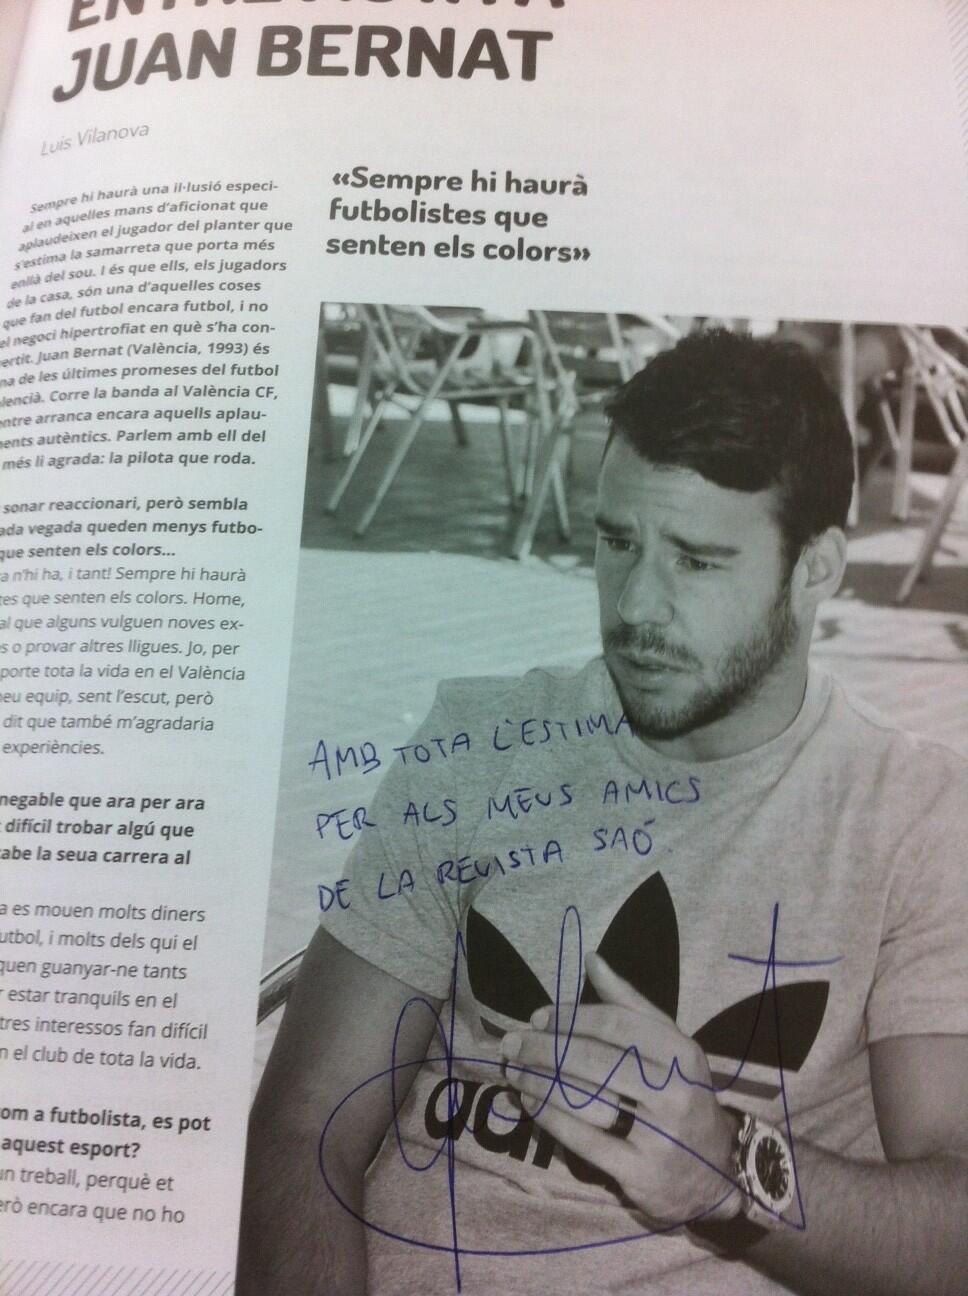 JUAN BERNAT
Luis Vilanova
Sempre hi haurà una il·lusió especi-
al en aquelles mans d'aficionat que
aplaudeixen el jugador del planter que
s'estima la samarreta que porta més
enllà del sou. I és que ells, els jugadors
de la casa, són una d'aquelles coses
que fan del futbol encara futbol, i no
el negoci hipertrofiat en què s'ha con-
vertit. Juan Bernat (València, 1993) és
de les últimes promeses del futbol
València. Corre la banda al València CF,
arranca encara aquells aplau-
autèntics. Parlem amb ell del
més li agrada: la pilota que roda.
sonar reaccionari, però sembla
vegada queden menys futbo-
que senten els colors...
n'hi ha, i tant! Sempre hi haurà
que senten els colors. Home,
que alguns vulguen noves ex-
o provar altres lligues. Jo, per
porte tota la vida en el València
equip, sent l'escut, però
dit que també m'agradaria
experiències.
negable que ara per ara
difícil trobar algú que
la seua carrera al
es mouen molts diners
i molts dels qui el
guanyar-ne tants
estar tranquils en el
interessos fan difícil
el club de tota la vida.
a futbolista, es pot
aquest esport?
un treball, perquè et
encara que no ho
«Sempre hi haurà
futbolistes que
senten els colors»
AMB TOTA L'ESTIMA
PER ALS MEUS AMICS
DE LA REVISTA SAÓ.